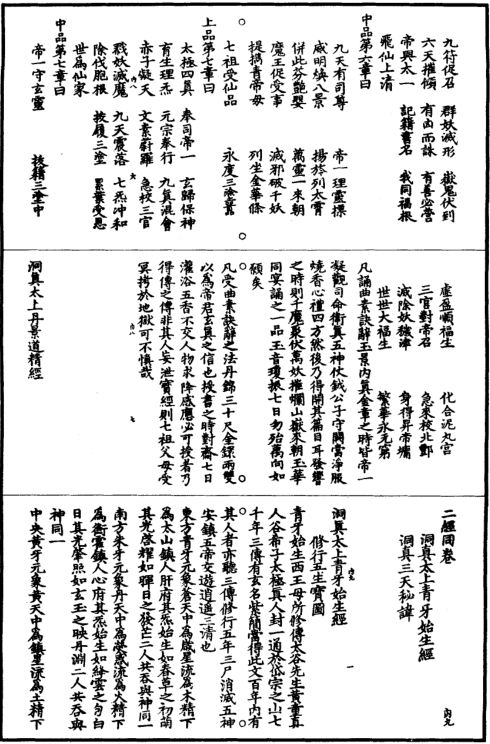 九符促召　群妖滅形　嶽鬼伏到
六天摧傾　有凶而誅　有善必營
帝與太一　記籍書名　我同福根
飛仙上清
中品第六章曰
九天有司尊　帝一理靈標
威明煥八景　揚於列太霄
併此芬艷嬰　萬靈一來朝
魔王促受事　滅邪破千妖
提攜青帝母　列坐金華條
七祖受仙品　永度三塗寮
上品第七章曰
太極四真　奉司帝一　玄歸保神
育生理炁　元宗奉行　九真混會
赤子凝天　文素蔚羅　急校三官
內八　六
戮妖滅魔　九天震落　七炁沖和
除伐胞根　拔履三塗　累葉受恩
世為仙家
中品第七章曰
帝一守玄靈　拔籍三塗中
虛盈順福生　化合泥丸宮
三官對帝召　急來校北酆
滅陰妖穢津　身得昇帝墉
世世大福生　繁華永无窮
凡誦曲素訣辭玉景內真金章之時皆帝一
凝觀司命衛真五神仗鉞公子守關當淨服
燒香心禮四方然後乃得開其篇目耳發響
之時則千魔聚伏萬妖摧爛山嶽來朝玉華
同宴誦之一品玉音瓊振七日勿殆萬向如
願矣
凡受曲素訣辭之法丹錦三十尺金鐶兩雙
以為帝君玄真之信也授書之時對齋七日
灌浴五香不交人物求降感應必可授者乃
得傳之傳非其人妄泄寶經則七祖父母受
冥拷於地獄可不慎哉
內八　七
洞真太上丹景道精經
二經同卷
洞真太上青牙始生經
洞真三天秘諱
內九
洞真太上青牙始生經
內九　一
修行五生寶圖
青牙始生西王母所修傳太谷先生黃童真
人谷希子太極真人封一通於岱宗之山七
千年三傳有玄名紫簡當得此文百年內有
其人者亦聽三傳修行五年三尸消滅五神
安鎮五帝交遊逍遙三清也
東方青牙元象蒼天中為歲星流為木精下
為太山鎮人肝府其炁始生如春草之初萌
其光啓耀如暉日之發芒二人共吞與神同一
南方朱牙元象丹天中為熒惑流為火精下
為衡霍鎮人心府其炁始生如絳雲之勻白
日其光肇照如玄玉之映丹淵二人共吞與
神同一
中央黃牙元象黃天中為鎮星流為土精下